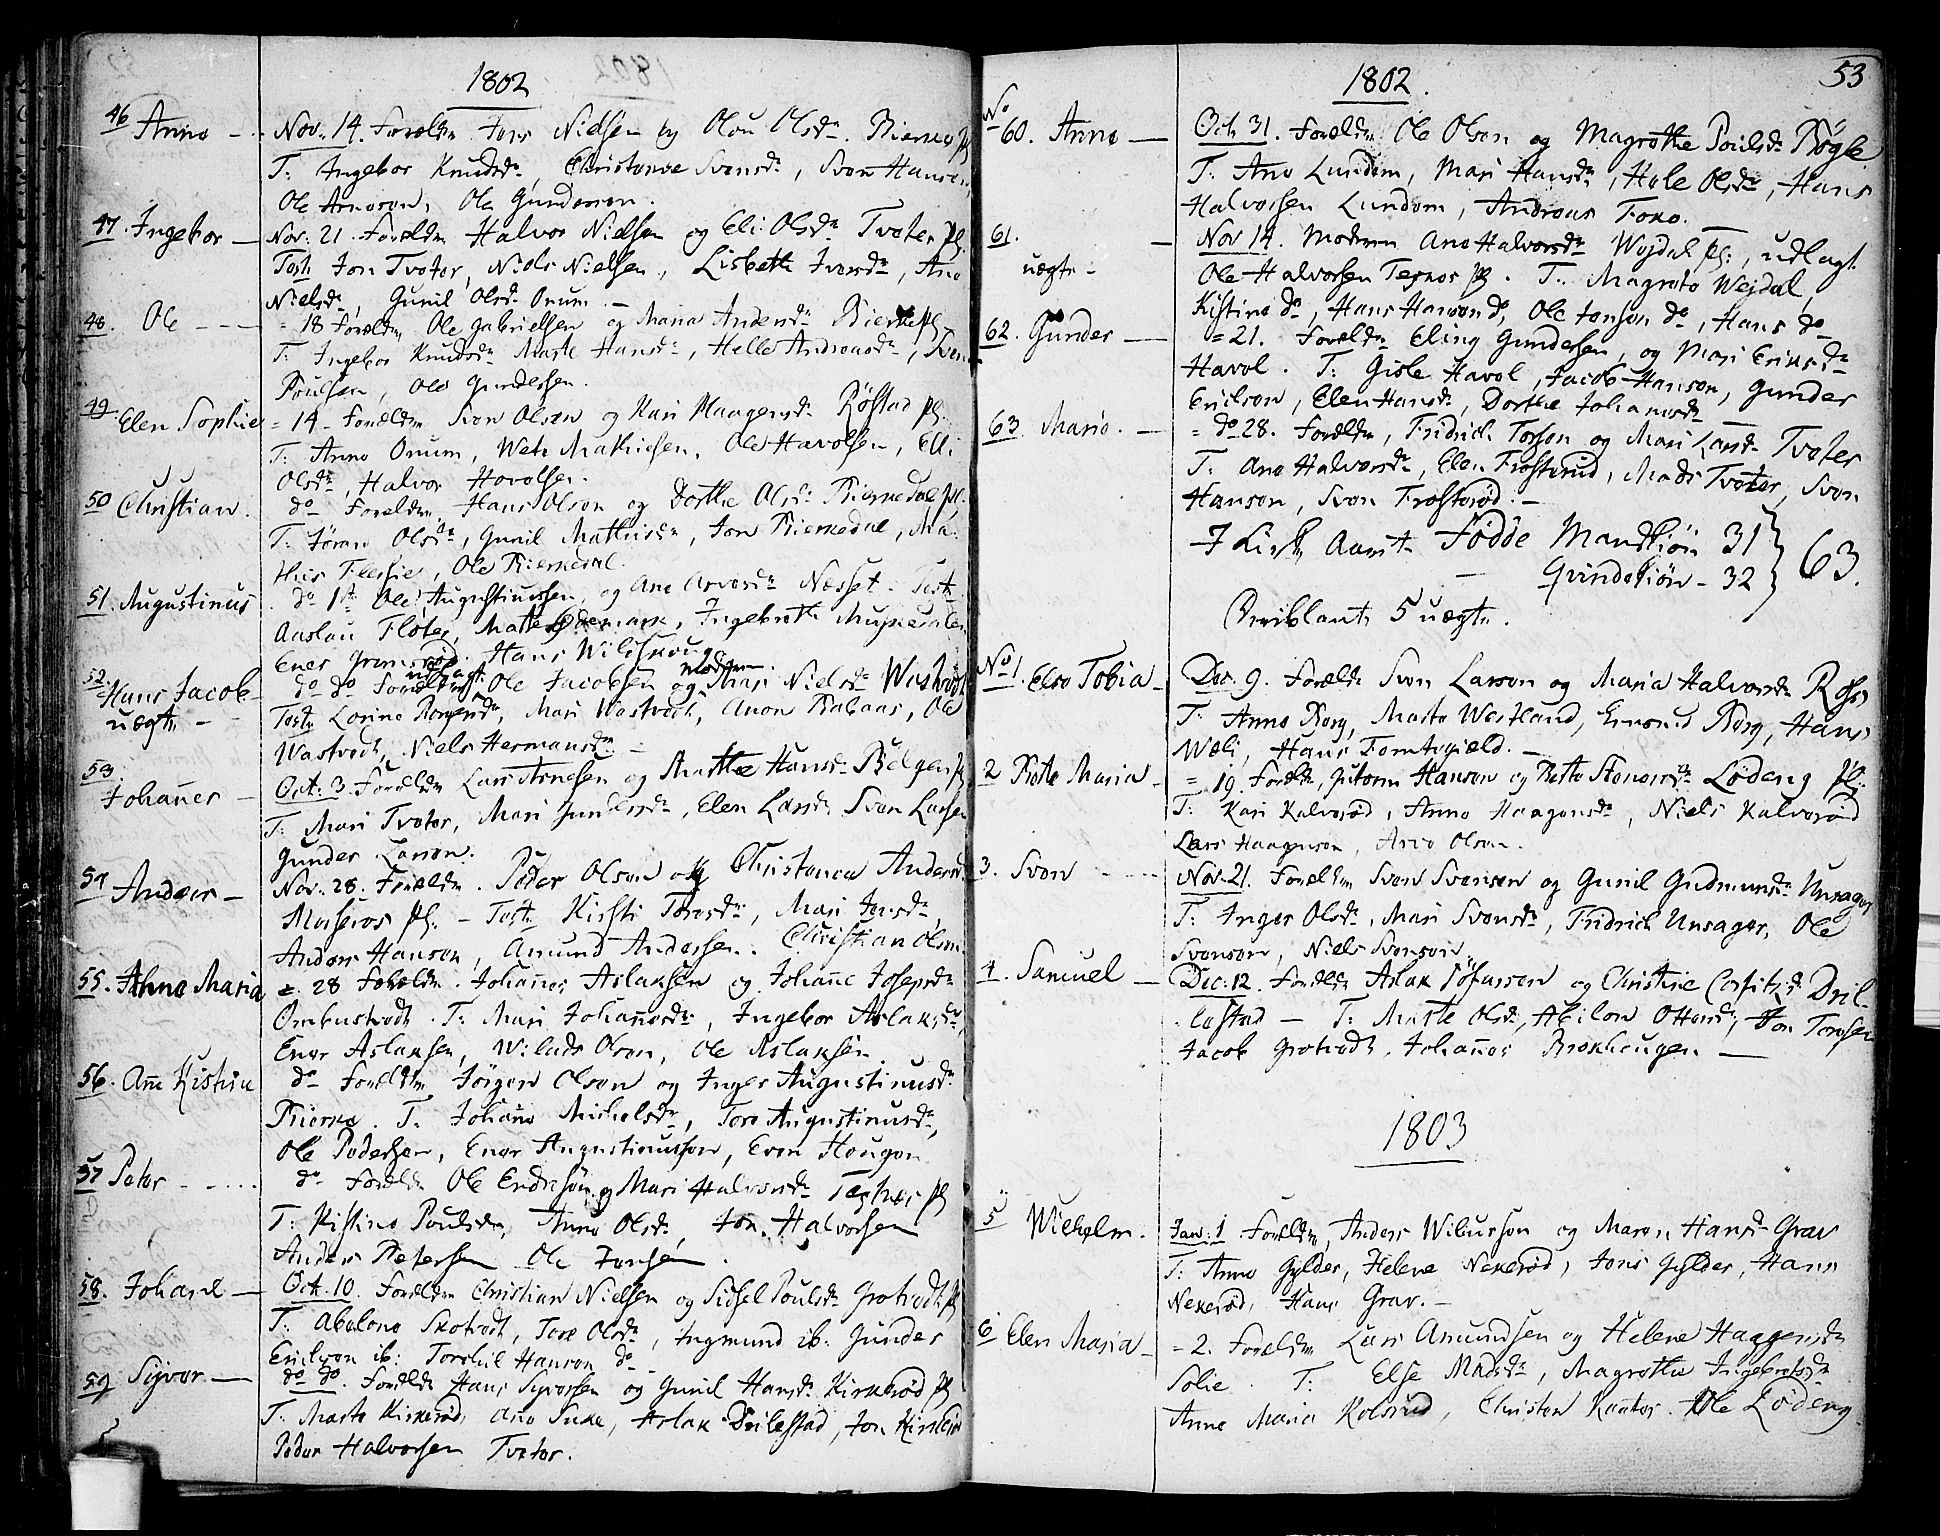 1802
46 Anne - - Nov. 14. Foræld. Jens Nielsen og Olou Olsd. Bierne pl
T: Ingebor Knudsd., Christense Svensd., Sven Hansen,
Ole Arneson, Ole Gundersen.
47 Ingebor — Nov: 21. Foræld. Halvor Nielsen og Eli Olsd. Tveter pl.
Test. Jon Tveter, Niels Nielsen, Lisbeth Iversd., Ane
Nielsd., Gunil Olsd. Onum. —
48. Ole - - - = 18 Foræld. Ole Gabrielsen og Maria Andersd. Bierne pl.
T: Ingebor Knudsd. Marte Hansd., Helle Andreasd., Sven
Poulsen, Ole Gundersen.
49. Elen Sophie = 14 - Foræld. Sven Olsen og Kari Haagensd. Röstad pl.
T: Anne Onum, Mathiesen, Ole Havolsen, Elli
Olsd., Halvor Havolsen.
50 Christian. do Foræld. Hans Olsen og Dorthe Olsd. Biernedal pl.
T: Jöran Olsd., Gunil Mathisd., Jon Biernedal, Ma-
this Flessie, Ole Biernedal.
51. Augustinus. do 1st Ole Augustinussen, og Ane Arvesd. Næsset. Test.
Aaslau Floter, Matte Ödemark, Ingebret
Ener Gremeröd. Hans Wilskoug.
udlagt moderen
52. Hans Jacob - do do Foræld. Ole Jacobsen og Mari Nielsd. Westvedt
uægte - - Test. Lorine, Mari Westvedt, Anon Rabaas, Ole
Westvedt, Niels Hermansd. —
53. Johanes — Oct: 3. Foræld. Lars Arnesen og Marthe Hansd. Belgen pl
T: Mari Tveter, Mari Gundersd., Elen Larsd. Sven Larsen
Gunder Larsen.
54 Anders — Nov: 28. Foræld. Peder Olsen og Christence Andersd.
Moseros pl. - Test. Kirsti Toresd., Mari Jensd.,
Anders Hansen, Amund Andersen. Christian Olsen
55. Anne Maria = 28 Foræld. Johannes Aslaksen og Johane Josepsd.
Ombustvedt. T: Mari Johanesd., Ingebor Aslaksd.,
Ener Aslaksen, Wilads Olsen, Ole Aslaksen.
56. Ane Kistine do Foræld. Jörgen Olsen og Inger Augustinusd.
Bierke. T. Johane Michelsd., Tore Augustinusd.,
Ole Pedersen, Ener Augustinussen, Even Hougen
57 Peter - - - - do Foræld. Ole Endresön og Mari Halvorsd. Tegnes pl
T: Kistine Poulsd., Anne Olsd., Jon Halvorsen
Anders Petersen Ole Jonsen.
58. Johane — Oct. 10. Foræld. Christian Nielsen og Sidsel Poulsd. Grotvedt pl
T: Abelone Skotvedt, Tore Olsd., Ingmund ib: Gunder
Erichsen ib: Torchil Hansen do
59 Syver — do do. Foræld. Hans Syversen og Gunil Hansd. Kirkeröd pl
T: Marte Kirkeröd, Ane Suke, Aslak Drilestad, Jon Kirkeröd
Peder Halvorsen Tveter.
53
1802.
No 60. Anne — Oct. 31. Foræld. Ole Olsen og Magrethe Poulsd. Bögle
T: Ane Lundem, Mari Hansd., Hele Olsd., Hans
Halvorsen Lundem, Andreas Foxo.
61. uægte - — Nov 14. moderen Ane Halvorsd. Wejdal pl:, udlagt
Ole Halvorsen Tegnes pl. T: Magrete Wejdal,
Kistine do, Hans Hansen do, Ole Jensen do, Hans do
62. Gunder — = 21. Foræld. Eling Gundersen, og Mari Eriksd.
Havol. T: Gisle Havol, Jacob Hansen, Gunder
Erichsen, Elen Hansd., Dorthe Johanesd.
63. Marie. — = do 28. Foræld., Fridrich Torsen og Mari Larsd. Tveter
T: Ane Halvorsd., Elen Frösteröd, Mads Tveter, Sven
Hansen, Sven Frösteröd. —
I Kirke Aaret Födde Mandkiön 31 } 63.
— Qvindekiön - 32
Deriblant 5 uægte.
No 1. Else Tobia — Dec. 9. Foræld. Sven Larsen og Maria Halvorsd. Röss
T: Anne Berg, Marte Westland, Berg, Hans
Wæli, Hans Femtegjæld. —
2 Bette Maria — = 19. Foræld., Gutorm Hansen og Bette Stenersd. Lödeng pl.
T: Kari Kalveröd, Anne Haagensd., Niels Kalveröd
Lars Haagensen, Arve Olsen.
3. Sven - - - - Nov. 21. Foræld. Sven Svensen og Gunil Gudmunsd. Unsager
T: Inger Olsd., Mari Svensd., Fridrich Unsager, Ole
Svensen, Niels Svensen.
4. Samuel — Dec: 12. Foræld. Aslak Töfersen og Christine Dril-
lestad — T: Marte Olsd., Abilon Ottersd., Jon Toresen
Jacob Grotvedt, Johannes Brekhougen —
1803
5 Wilhelm. Jan: 1. Foræld. Anders Wibursson og Maren Hansd. Grav
T: Anne Gylder, Helene Nekeröd, Jens Gylder, Hans
Nekeröd, Hans Grav. —
6 Elen Maria — = 2. Foræld. Lars Amundsen og Helene Haagensd.
Solie. T: Else Madsd., Magrethe Ingebretsd.
Anne Maria Kolsrud, Christen Kantor. Ole Lödeng